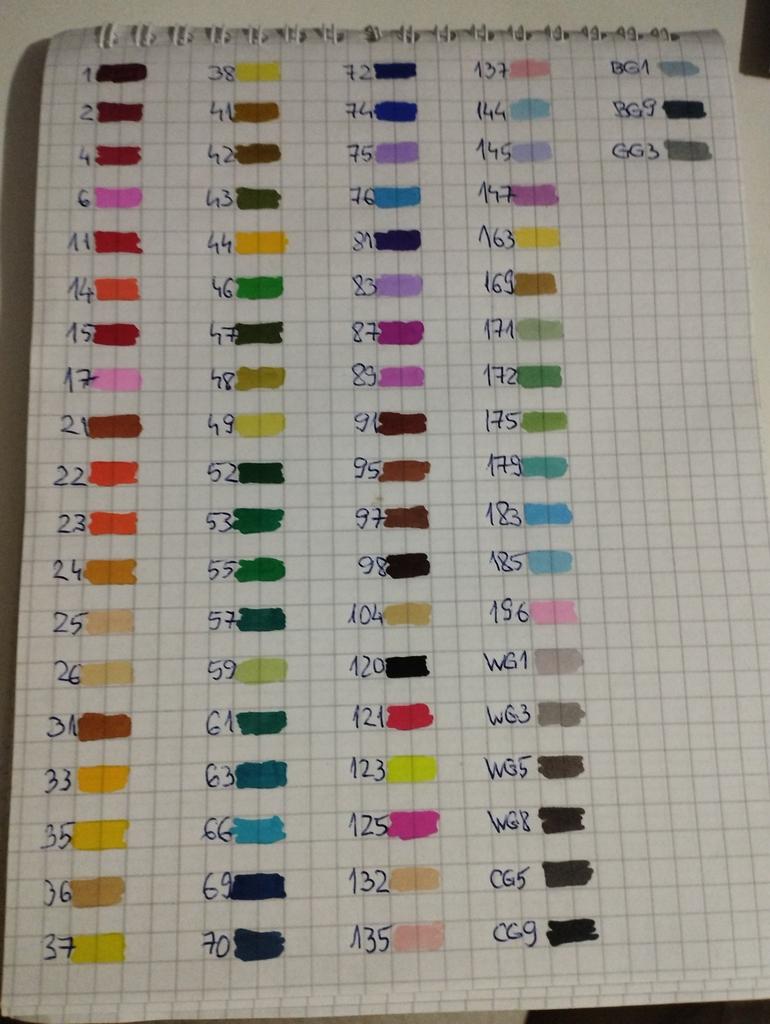 1 38 72 137 BG1
2 41 74 144 BG9
4 42 75 145 GG3
6 43 76 147
11 44 81 163
14 46 83 169
15 47 87 171
17 48 89 172
21 49 91 175
22 52 95 179
23 53 97 183
24 55 98 185
25 57 104 196
26 59 120 WG1
31 61 121 WG3
33 63 123 WG5
35 66 125 WG8
36 69 132 CG5
37 70 135 CG9